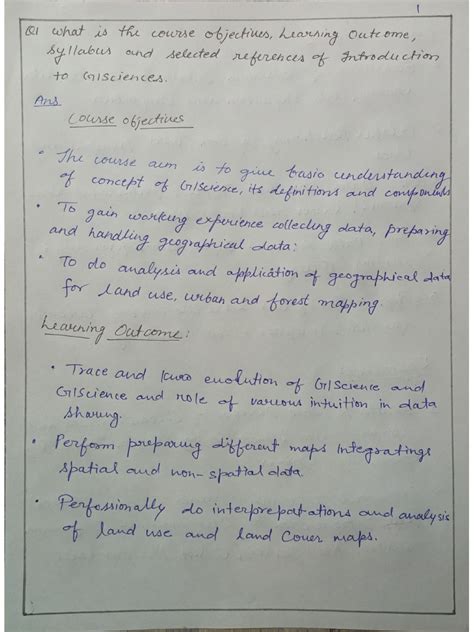 1
Q1 what is the course objectives, Learning Outcome,
syllabus and selected references of Introduction
to GISciences.
Ans
Course objectives
• The course aim is to give basic understanding
of concept of GIScience, its definitions and components
• To gain working experience collecting data, preparing
and handling geographical data:
• To do analysis and application of geographical data
for land use, urban and forest mapping.
Learning Outcome:
• Trace and know evolution of GIScience and
GIScience and role of various intuition in data
sharing.
• Perform preparing different maps Integratings
spatial and non-spatial data.
• Perfessionally do interprepatations and analysis
of land use and land Cover maps.